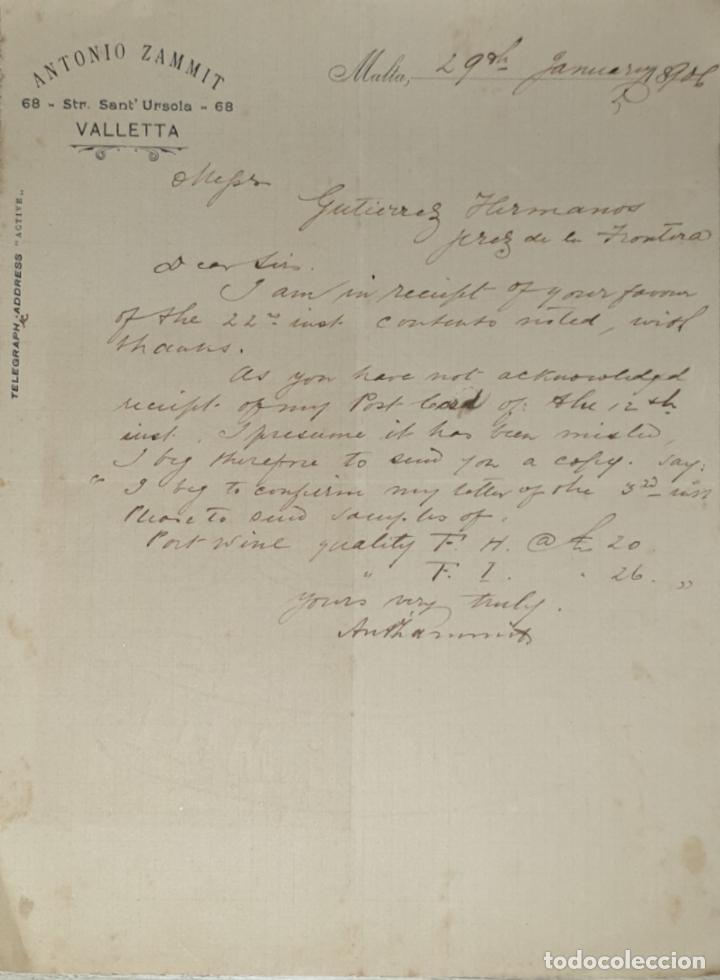 ANTONIO ZAMMIT
68 - Str. Sant' Ursola - 68
VALLETTA
TELEGRAPH ADDRESS "ACTIVE"
Malta, 29th January 1906
Messrs
Gutierrez Hermanos
Jerez de la Frontera
Dear Sirs.
I am in receipt of your favour
of the 22nd inst contents noted, with
thanks.
As you have not acknowledged
receipt of my Post Card of the 12th
inst, I presume it has been misled,
I beg therefore to send you a copy. Say:
" I beg to confirm my letter of the 3rd inst
Please to send samples of.
Port Wine quality F. H. @ £ 20
" F. I. " 26. "
Yours very truly.
Ant Zammit
todocoleccion
todocoleccion.net